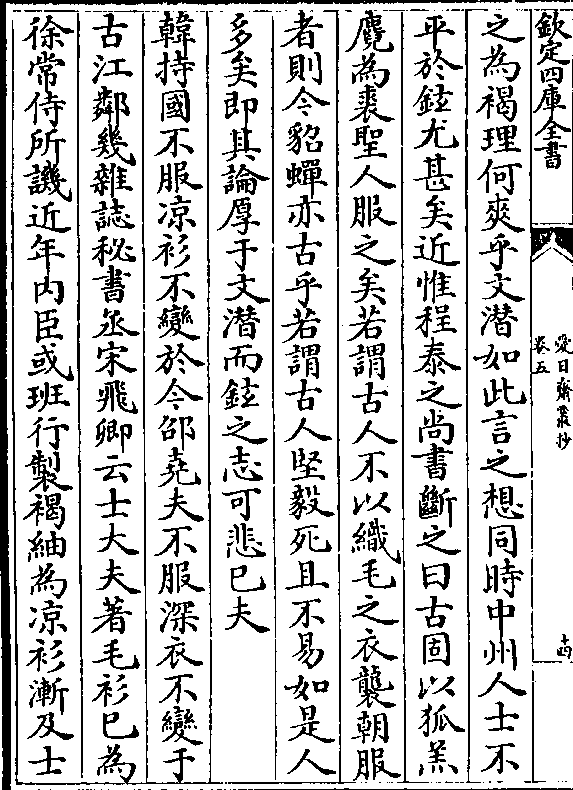 欽定四庫全書
愛日齋叢抄
卷五
十四
之為褐理何爽乎文潛如此言之想同時中州人士不
平於鉉尤甚矣近惟程泰之尚書斷之曰古固以狐羔
麑為裘聖人服之矣若謂古人不以織毛之衣襲朝服
者則今貂蟬亦古乎若謂古人堅毅死且不易如是人
多矣即其論厚于文潛而鉉之志可悲已夫
韓持國不服凉衫不變於今邵堯夫不服深衣不變于
古江鄰幾雜誌秘書丞宋飛卿云士大夫著毛衫已為
徐常侍所譏近年内臣或班行製褐紬為凉衫漸及士